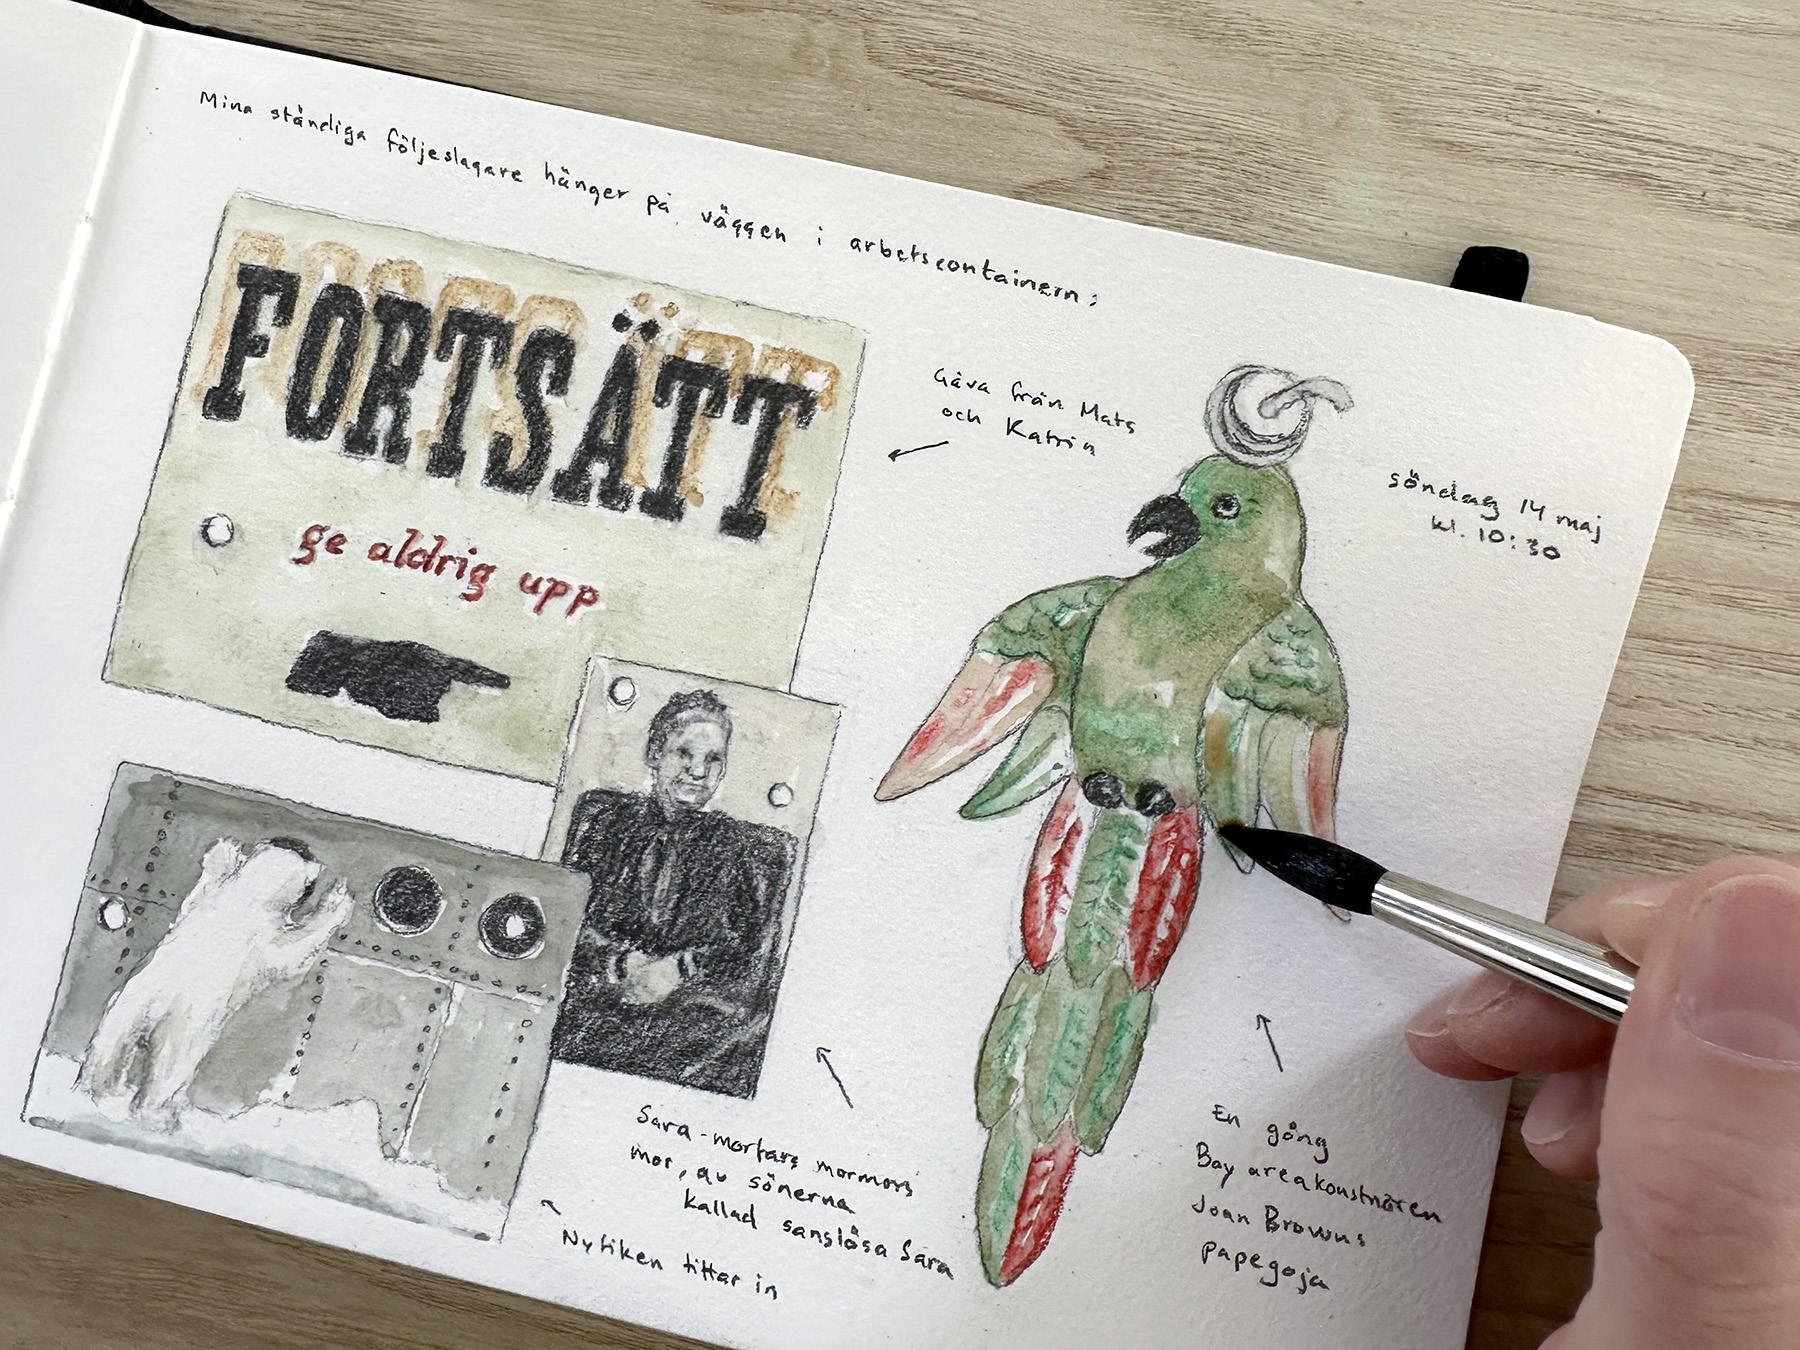 Mina ständiga följeslagare hänger på väggen i arbetscontainern:
FORTSÄTT
ge aldrig upp
Gåva från Mats
och Katrin
söndag 14 maj
kl. 10:30
Sara - morfars mormors
mor, av sönerna
kallad sanslösa Sara
Nyfiken tittar in
En gång
Bay areakonstnären
Joan Browns
papegoja